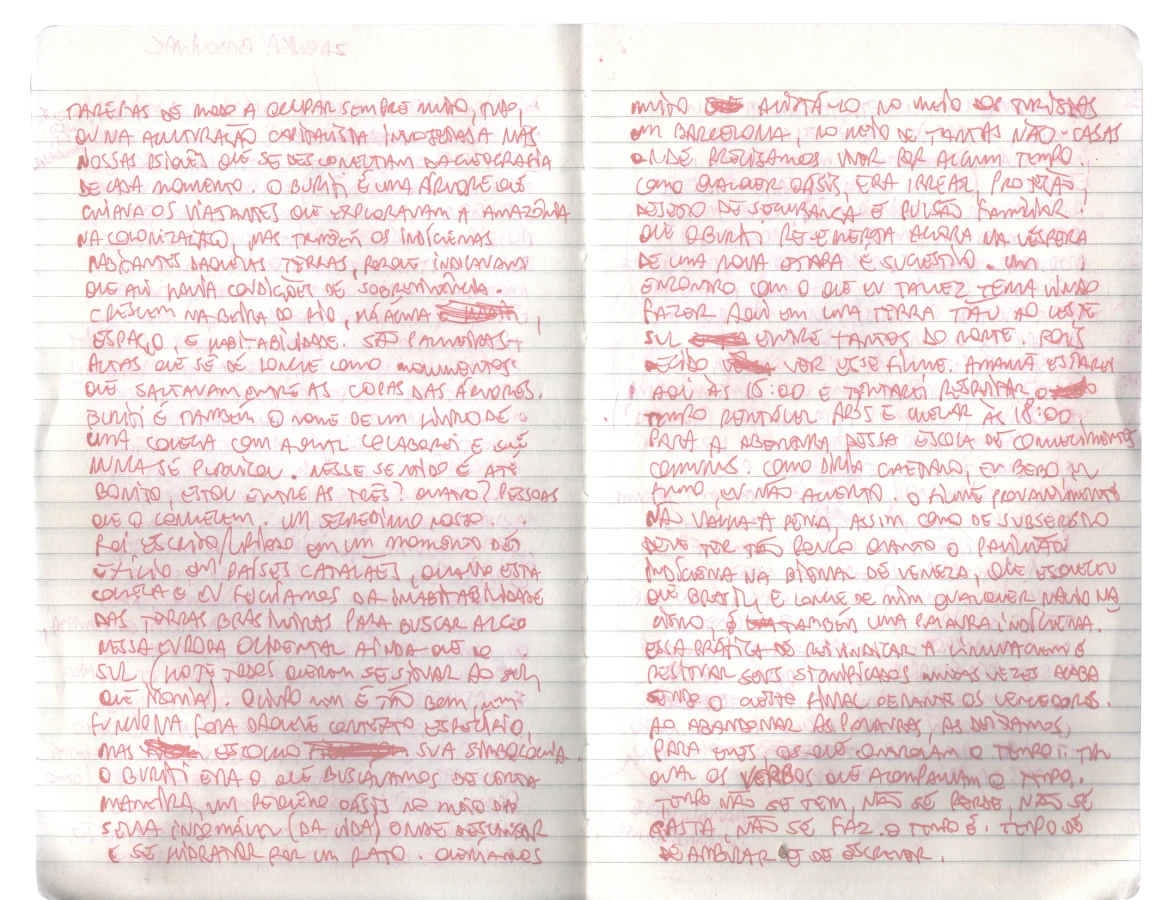 TAREFAS DE MODO A OCUPAR SEMPRE MUITO, TUDO,
OU NA ACUMULAÇÃO CAPITALISTA NAS
NOSSAS PSIQUÊS QUE SE DESCONECTAM DA GEOGRAFIA
DE CADA MOMENTO. O BURITI É UMA ÁRVORE QUE
GUIAVA OS VIAJANTES QUE EXPLORAVAM A AMAZÔNIA
NA COLONIZAÇÃO, MAS TAMBÉM OS INDÍGENAS
HABITANTES DAQUELAS TERRAS, PORQUE INDICAVAM
QUE ALI HAVIA CONDIÇÕES DE SOBREVIVÊNCIA.
CRESCEM NA BEIRA DO RIO, HÁ ÁGUA,
ESPAÇO, E HABITABILIDADE. SÃO PALMEIRAS
ALTAS QUE SE VÊ DE LONGE COMO MONUMENTOS
QUE SALTAVAM ENTRE AS COPAS DAS ÁRVORES.
BURITI É TAMBÉM O NOME DE UM LIVRO DE
UMA COLEGA COM A QUAL COLABOREI E QUE
NUNCA SE PUBLICOU. NESSE SENTIDO É ATÉ
BONITO, ESTOU ENTRE AS TRÊS? QUATRO? PESSOAS
QUE O CONHECEM. UM SEGREDINHO NOSSO.
FOI ESCRITO/CRIADO EM UM MOMENTO DE
EXÍLIO EM PAÍSES CATALÃES, QUANDO ESTA
COLEGA E EU FUGÍAMOS DA INABITABILIDADE
DAS TERRAS BRASILEIRAS PARA BUSCAR ALGO
NESSA EUROPA OCIDENTAL AINDA QUE NO
SUL (HOJE TODOS QUEREM SE SITUAR AO SUL,
QUE IRONIA). QUANDO UM É TÃO BEM, UM
FUNCIONA FORA DAQUELE CONTEXTO
MAS ESCOLHO SUA SIMBOLOGIA.
O BURITI ERA O QUE BUSCÁVAMOS DE CERTA
MANEIRA, UM PEQUENO OÁSIS NO MEIO DA
SELVA INDOMÁVEL (DA VIDA) ONDE DESCANSAR
E SE HIDRATAR POR UM RATO. QUERÍAMOS
MUITO AVISTÁ-LO NO MEIO DOS TURISTAS
EM BARCELONA, NO MEIO DE TANTAS NÃO-CASAS
ONDE PRECISAMOS VIVER POR ALGUM TEMPO.
COMO QUALQUER OÁSIS, ERA IRREAL, PROJEÇÃO,
DESEJO DE SEGURANÇA E PULSÃO FAMILIAR.
QUE O BURITI REEMERJA AGORA NA VÉSPERA
DE UMA NOVA ETAPA É SUGESTIVO. UM
ENCONTRO COM O QUE EU TALVEZ TENHA VINDO
FAZER AQUI EM UMA TERRA TÃO AO LESTE
SUL ENTRE TANTOS DO NORTE. POIS
DECIDO VER ESSE FILME. AMANHÃ ESTAREI
AQUI ÀS 16:00 E TENTAREI RESPEITAR O
TEMPO RENTÁVEL E CHEGAR ÀS 18:00
PARA A ABERTURA DESSA ESCOLA DE CONHECIMENTOS
COMUNS. COMO DIRIA CAETANO, EU BEBO EU
FUMO, EU NÃO AGUENTO. O FILME PROVAVELMENTE
NÃO VALHA A PENA, ASSIM COMO DE SUBSERVIÊNCIA
DEVE TER TÃO POUCO QUANTO O PAVILHÃO
INDÍGENA NA BIENAL DE VENEZA, QUE ESQUECEU
QUE BRASIL, É LONGE DE MIM QUALQUER
É TAMBÉM UMA PALAVRA INDÍGENA.
ESSA PRÁTICA DE REIVINDICAR A LINGUAGEM E
RESITUAR SEUS SIGNIFICADOS MUITAS VEZES ACABA
SENDO O AJUSTE FINAL PERANTE OS VENCEDORES.
AO ABANDONAR AS PALAVRAS, AS DEIXAMOS,
PARA ELES OS QUE GUARDAM O TEMPO: TAL
QUAL OS VERBOS QUE ACOMPANHAM O TEMPO.
TEMPO NÃO SE TEM, NÃO SE PERDE, NÃO SE
GASTA, NÃO SE FAZ. O TEMPO É. TEMPO DE
DEAMBULAR E DE ESCREVER.